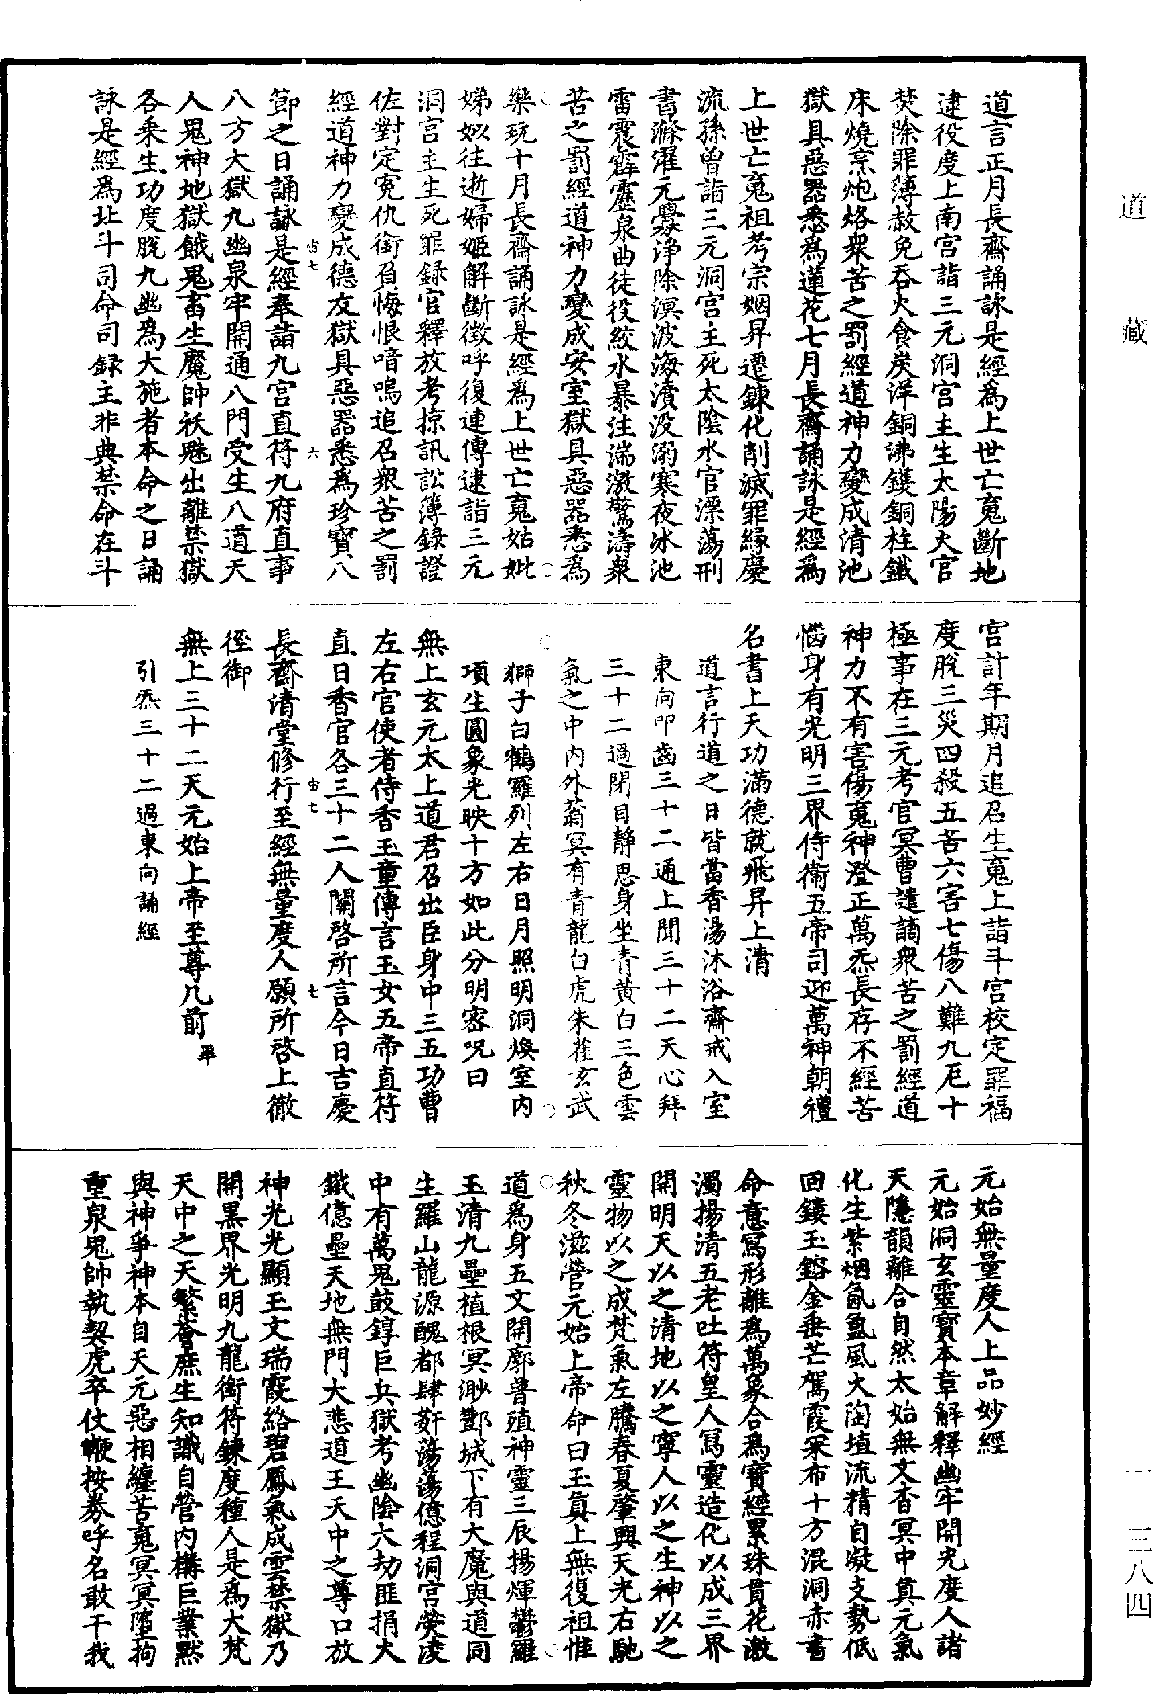 道言正月長齋誦詠是經爲上世亡䰟斷地
逮役度上南宮詣三元洞宮主生太陽火宮
焚除罪簿赦免吞火食炭洋銅沸鑊銅柱鐵
床燒烹炮烙衆苦之罰經道神力變成清池
獄具惡器悉爲蓮花七月長齋誦詠是經爲
上世亡䰟祖考宗姻昇遷鍊化削滅罪緣慶
流孫曾詣三元洞宮主死太陰水官漂蕩刑
書滌濯元釁淨除溟波海瀆没溺寒夜冰池
雷震霹靂泉曲徒役絞水暴注湍激驚濤衆
苦之罰經道神力變成安室獄具惡器悉爲
樂玩十月長齋誦詠是經爲上世亡䰟姑妣
娣姒往逝婦姬解斷徵呼復連傳逮詣三元
洞宮主生死罪録官釋放考掠訊訟簿錄證
佐對定寃仇銜負悔恨喑嗚追召衆苦之罰
經道神力變成德友獄具惡器悉爲珍寶八
節之日誦詠是經奉詣九宮直符九府直事
八方大獄九幽泉牢開通八門受生八道天
人鬼神地獄餓鬼畜生魔帥祅魅出離禁獄
各乘生功度脫九幽爲大施者本命之日誦
詠是經爲北斗司命司録主非典禁命在斗
宮計年期月追召生䰟上詣斗宮校定罪福
度脫三災四殺五苦六害七傷八難九厄十
極事在三元考官冥曹譴謫衆苦之罰經道
神力不有害傷䰟神澄正萬炁長存不經苦
惱身有光明三界侍衛五帝司迎萬神朝禮
名書上天功滿德就飛昇上清
道言行道之日皆當香湯沐浴齋戒入室
東向叩齒三十二通上聞三十二天心拜
三十二過閉目靜思身坐青黃白三色雲
氣之中內外蓊冥有青龍白虎朱雀玄武
獅子白鶴羅列左右日月照明洞煥室內
項生圓象光映十方如此分明密呪曰
無上玄元太上道君召出臣身中三五功曹
左右官使者侍香玉童傳言玉女五帝直符
直日香官各三十二人關啓所言今日吉慶
長齋清堂修行至經無量度人願所啓上徹
徑御
無上三十二天元始上帝至尊几前畢
引炁三十二過東向誦經
元始無量度人上品妙經
元始洞玄靈寶本章解釋幽牢開光度人諸
天隱韻離合自然太始無文杳冥中真元氣
化生紫烟氤氳風火陶埴流精自凝支勢低
回鏤玉鎔金垂芒駕霞采布十方混洞赤書
命意寫形離爲萬象合爲寶經累珠貫花激
濁揚清五老吐符皇人寫靈造化以成三界
開明天以之清地以之寧人以之生神以之
靈物以之成梵氣左騰春夏肇興天光右馳
秋冬滋營元始上帝命曰玉真上無復祖惟
道爲身五文開廓普殖神靈三辰揚煇鬱羅
玉清九壘植根冥渺酆城下有大魔與道同
生羅山龍源醜都肆姧蕩蕩億程洞宮熒淩
中有萬鬼鼓錞巨兵獄考幽陰六劫匪捐大
鐵億壘天地無門大悲道王天中之尊口放
神光光顯玉文瑞霞絡碧鳳氣成雲禁獄乃
開黑界光明九龍銜符鍊度種人是爲大梵
天中之天繁薈庶生知識自營内構巨業黙
與神爭神本自天元惡相纏苦䰟冥冥墮拘
重泉鬼帥執契虎卒仗鞭按券呼名敢干我
道藏
一三八四